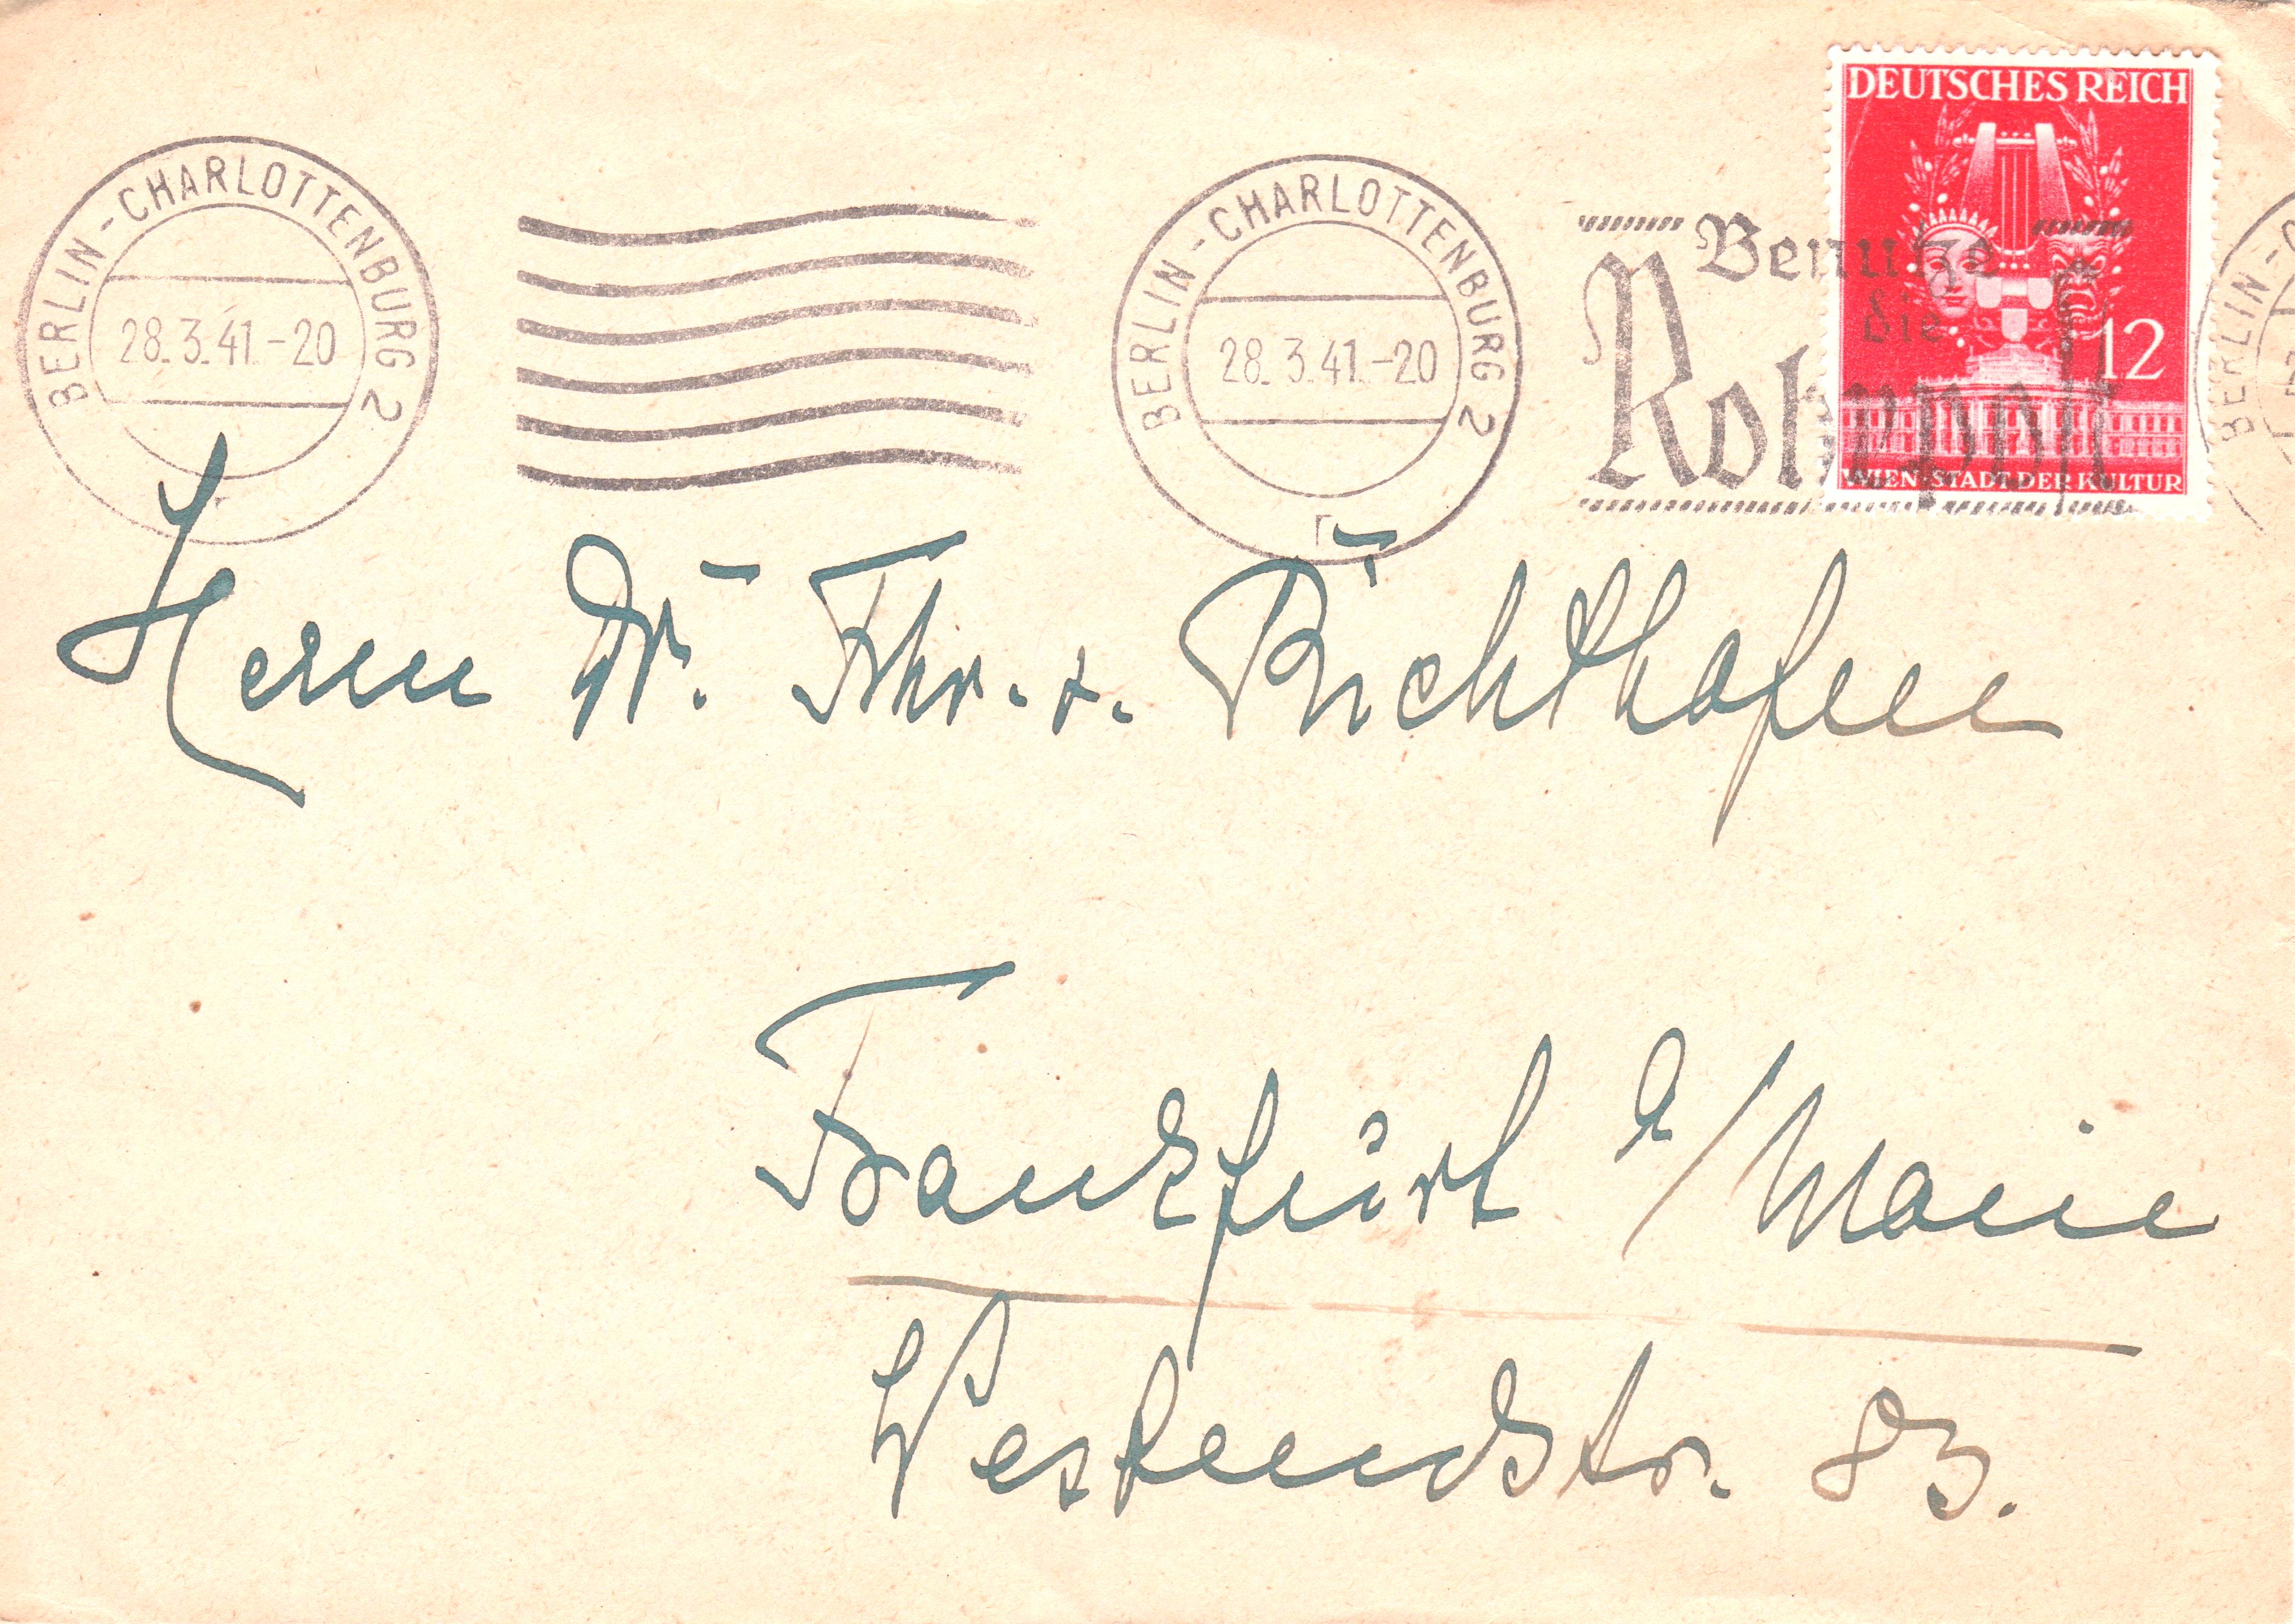 DEUTSCHES REICH
12
WIEN STADT DER KULTUR
BERLIN-CHARLOTTENBURG 2
28.3.41.-20
r
BERLIN-CHARLOTTENBURG 2
28.3.41.-20
r
Benutze
die
Rohrpost
BERLIN-C
Herrn Dr. Frhr. v. Richthofen
Frankfurt a/Main
Westendstr. 83.